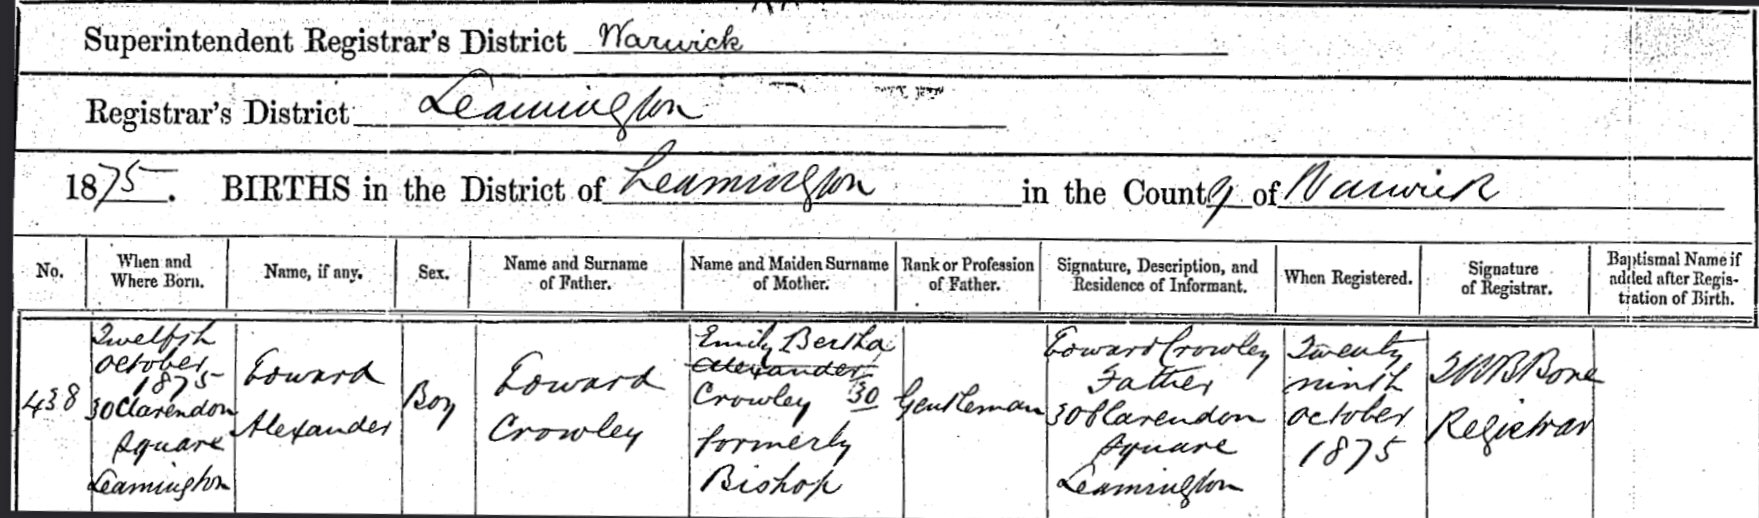 Superintendent Registrar's District Warwick
Registrar's District Leamington
1875. BIRTHS in the District of Leamington in the County of Warwick
No.
When and
Where Born.
Name, if any.
Sex.
Name and Surname
of Father.
Name and Maiden Surname
of Mother.
Rank or Profession
of Father.
Signature, Description, and
Residence of Informant.
When Registered.
Signature
of Registrar.
Baptismal Name if
added after Regis-
tration of Birth.
438
Twelfth
October
1875
30 Clarendon
Square
Leamington
Edward
Alexander
Boy
Edward
Crowley
Emily Bertha
Alexander
Crowley 30
formerly
Bishop
Gentleman
Edward Crowley
Father
30 Clarendon
Square
Leamington
Twenty
ninth
October
1875
Bone
Registrar